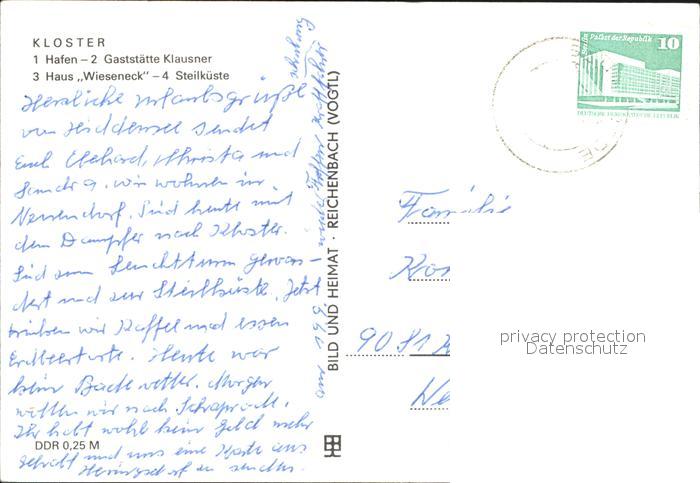 KLOSTER
1 Hafen – 2 Gaststätte Klausner
3 Haus „Wieseneck" – 4 Steilküste
Herzliche Urlaubsgrüße
von Hiddensee sendet
Euch Christa und
Sandra. Wir wohnen in
Neuendorf. Sind heute mit
dem Dampfer nach Kloster.
Sind zum Leuchtturm gewan-
dert und zur Steilküste. Jetzt
trinken wir Kaffee und essen
Erdbeertorte. Heute war
kein Badewetter. Morgen
wollen wir nach Schaprode.
Ihr habt wohl kein Geld mehr
gehabt und uns eine Karte aus
Heringsdorf zu senden.
am 19.8.
DDR 0,25 M
BILD UND HEIMAT · REICHENBACH (VOGTL)
Berlin Palast der Republik
10
DEUTSCHE DEMOKRATISCHE REPUBLIK
Familie
9081
privacy protection
Datenschutz